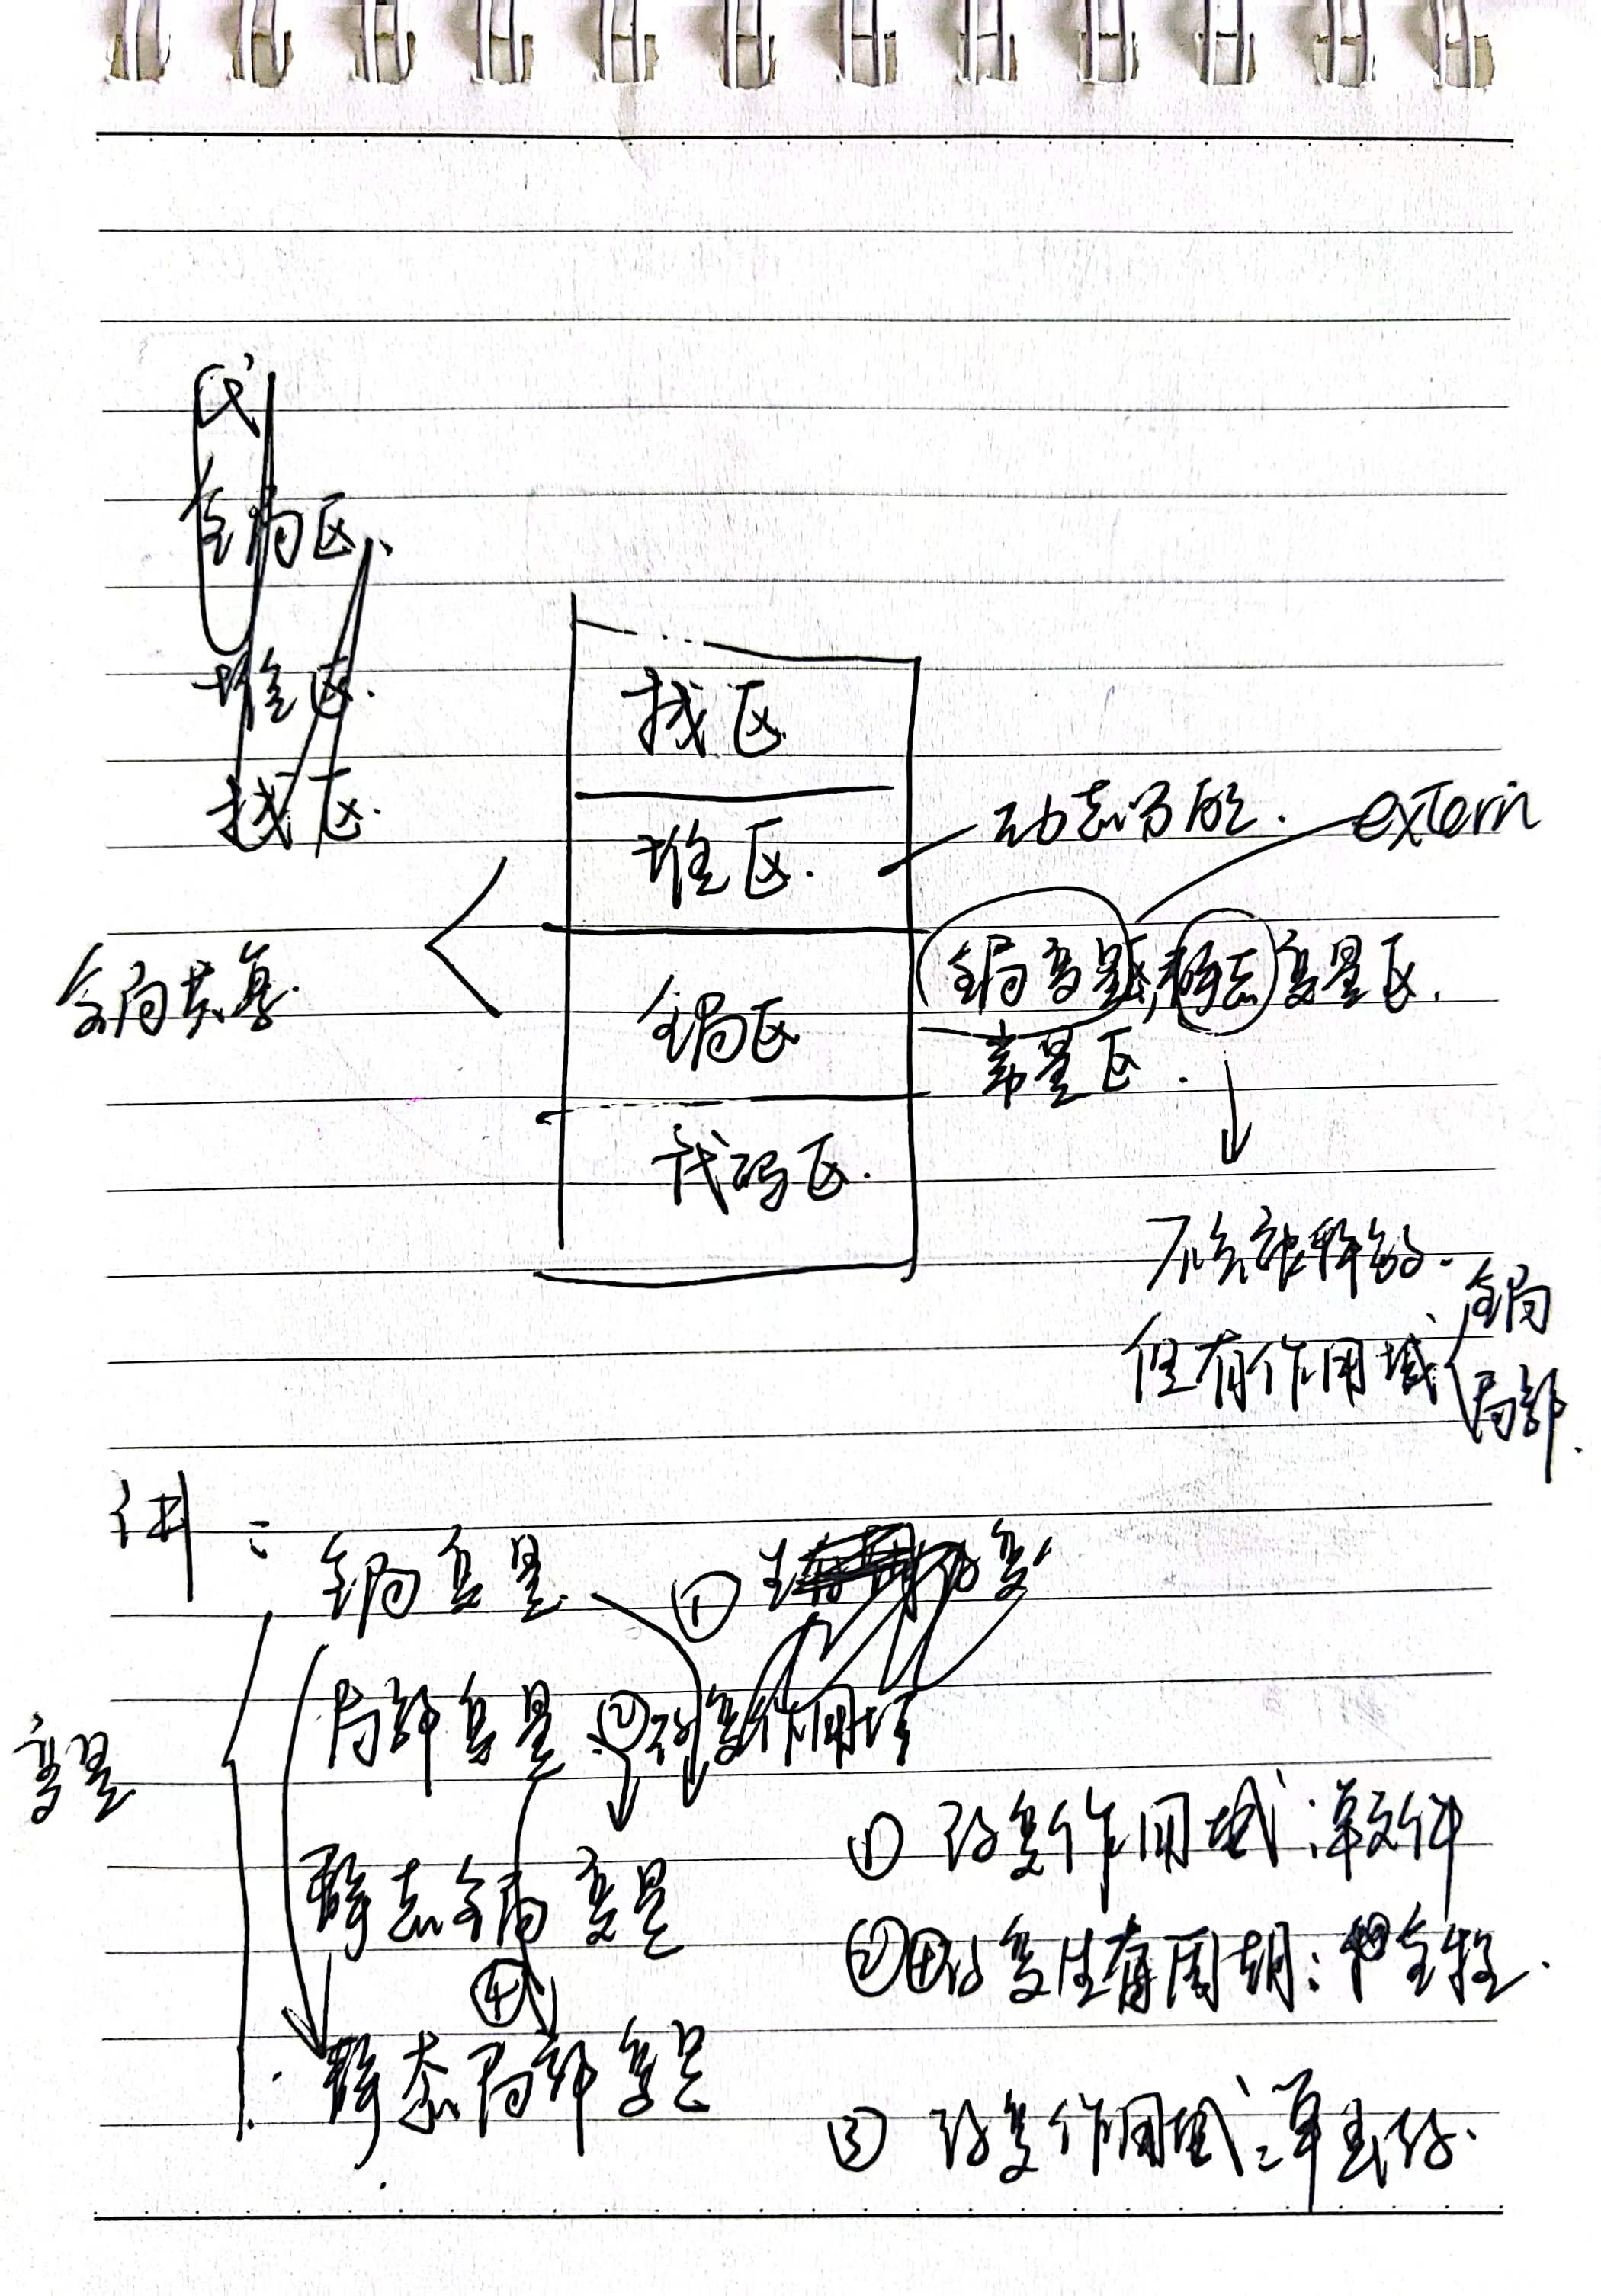 全局区、
堆区.
栈区.
栈区
堆区. 动态分配. extern
全局共享. 全局区 全局变量区,静态变量区.
常量区.
代码区.
不会被释放.
但有作用域 全局
局部.
全局变量. ①
变量 局部变量. ② 改变作用域
静态全局变量 ① 改变作用域:单文件
④ ②④改变生存周期:
静态局部变量
③ 改变作用域: